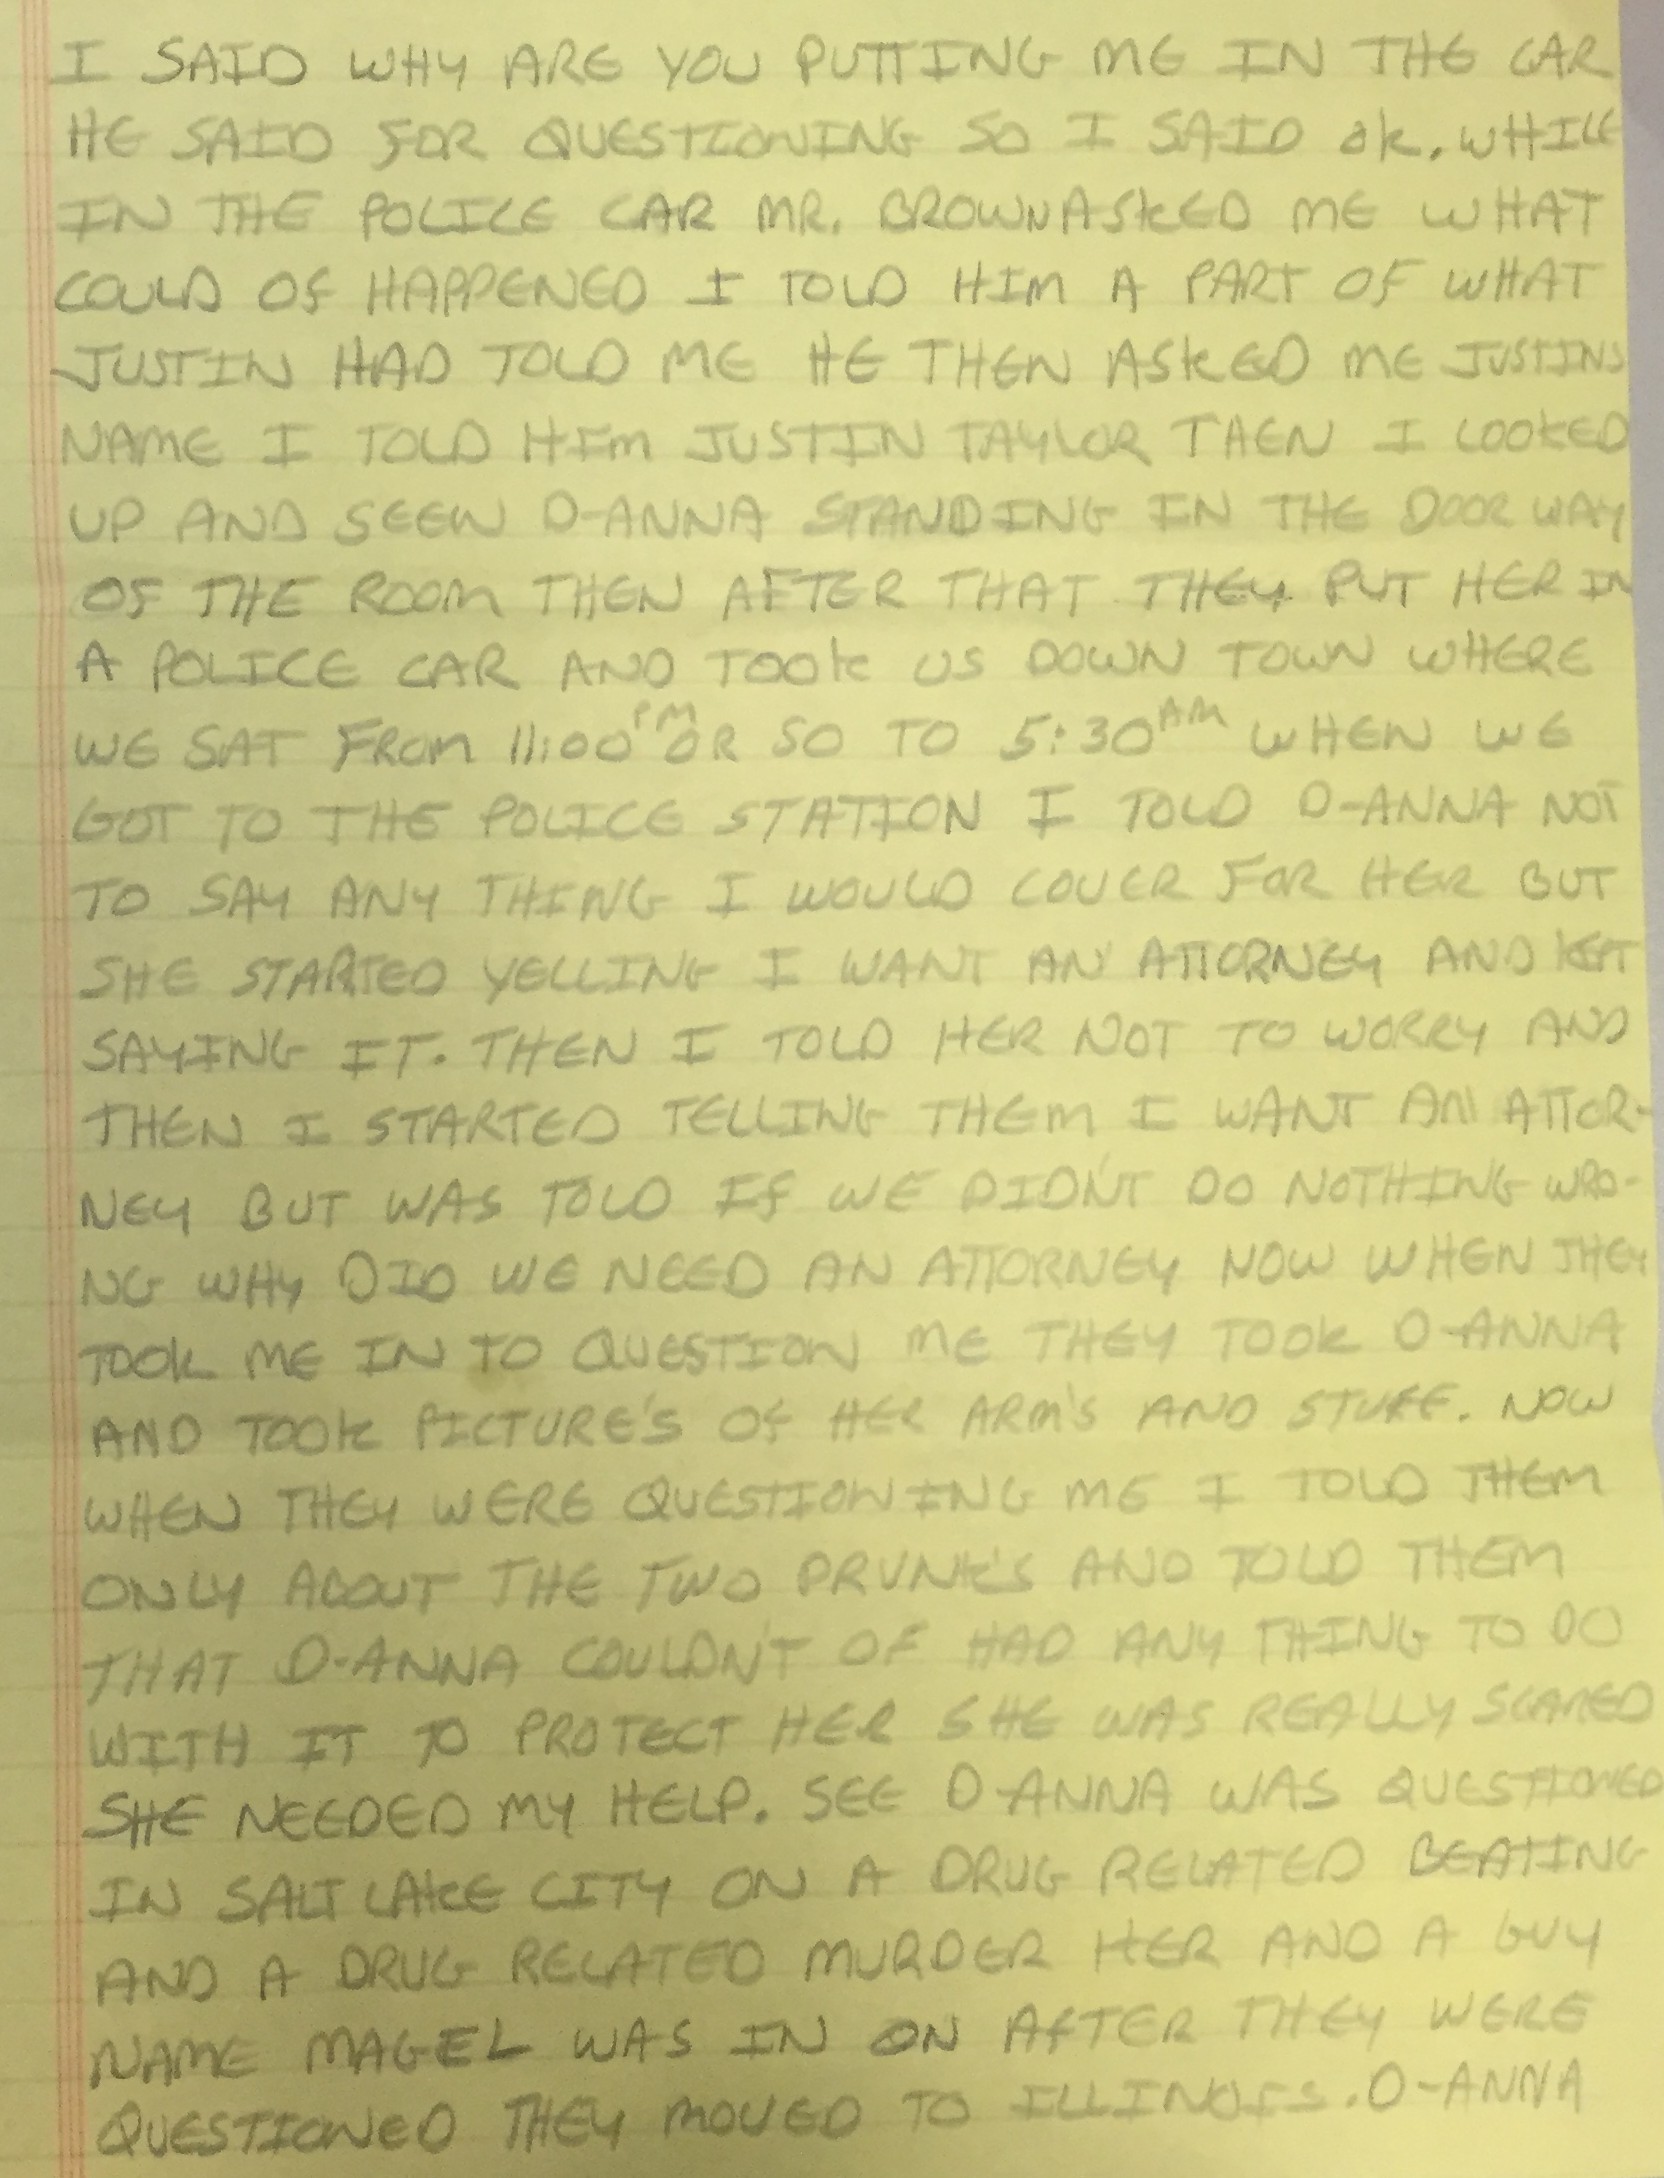 I SAID WHY ARE YOU PUTTING ME IN THE CAR
HE SAID FOR QUESTIONING SO I SAID OK. WHILE
IN THE POLICE CAR MR. BROWN ASKED ME WHAT
COULD OF HAPPENED I TOLD HIM A PART OF WHAT
JUSTIN HAD TOLD ME HE THEN ASKED ME JUSTINS
NAME I TOLD HIM JUSTIN TAYLOR THEN I LOOKED
UP AND SEEN D-ANNA STANDING IN THE DOOR WAY
OF THE ROOM THEN AFTER THAT THEY PUT HER IN
A POLICE CAR AND TOOK US DOWN TOWN WHERE
WE SAT FROM 11:00 PM OR SO TO 5:30 AM WHEN WE
GOT TO THE POLICE STATION I TOLD D-ANNA NOT
TO SAY ANY THING I WOULD COVER FOR HER BUT
SHE STARTED YELLING I WANT AN ATTORNEY AND KEPT
SAYING IT. THEN I TOLD HER NOT TO WORRY AND
THEN I STARTED TELLING THEM I WANT AN ATTOR-
NEY BUT WAS TOLD IF WE DIDN'T DO NOTHING WRO-
NG WHY DID WE NEED AN ATTORNEY NOW WHEN THEY
TOOK ME IN TO QUESTION ME THEY TOOK D-ANNA
AND TOOK PICTURE'S OF HER ARM'S AND STUFF. NOW
WHEN THEY WERE QUESTIONING ME I TOLD THEM
ONLY ABOUT THE TWO DRUNK'S AND TOLD THEM
THAT D-ANNA COULDN'T OF HAD ANY THING TO DO
WITH IT TO PROTECT HER SHE WAS REALLY SCARED
SHE NEEDED MY HELP. SEE D-ANNA WAS QUESTIONED
IN SALT LAKE CITY ON A DRUG RELATED BEATING
AND A DRUG RELATED MURDER HER AND A GUY
NAME MAGEL WAS IN ON AFTER THEY WERE
QUESTIONED THEY MOVED TO ILLINOIS. D-ANNA